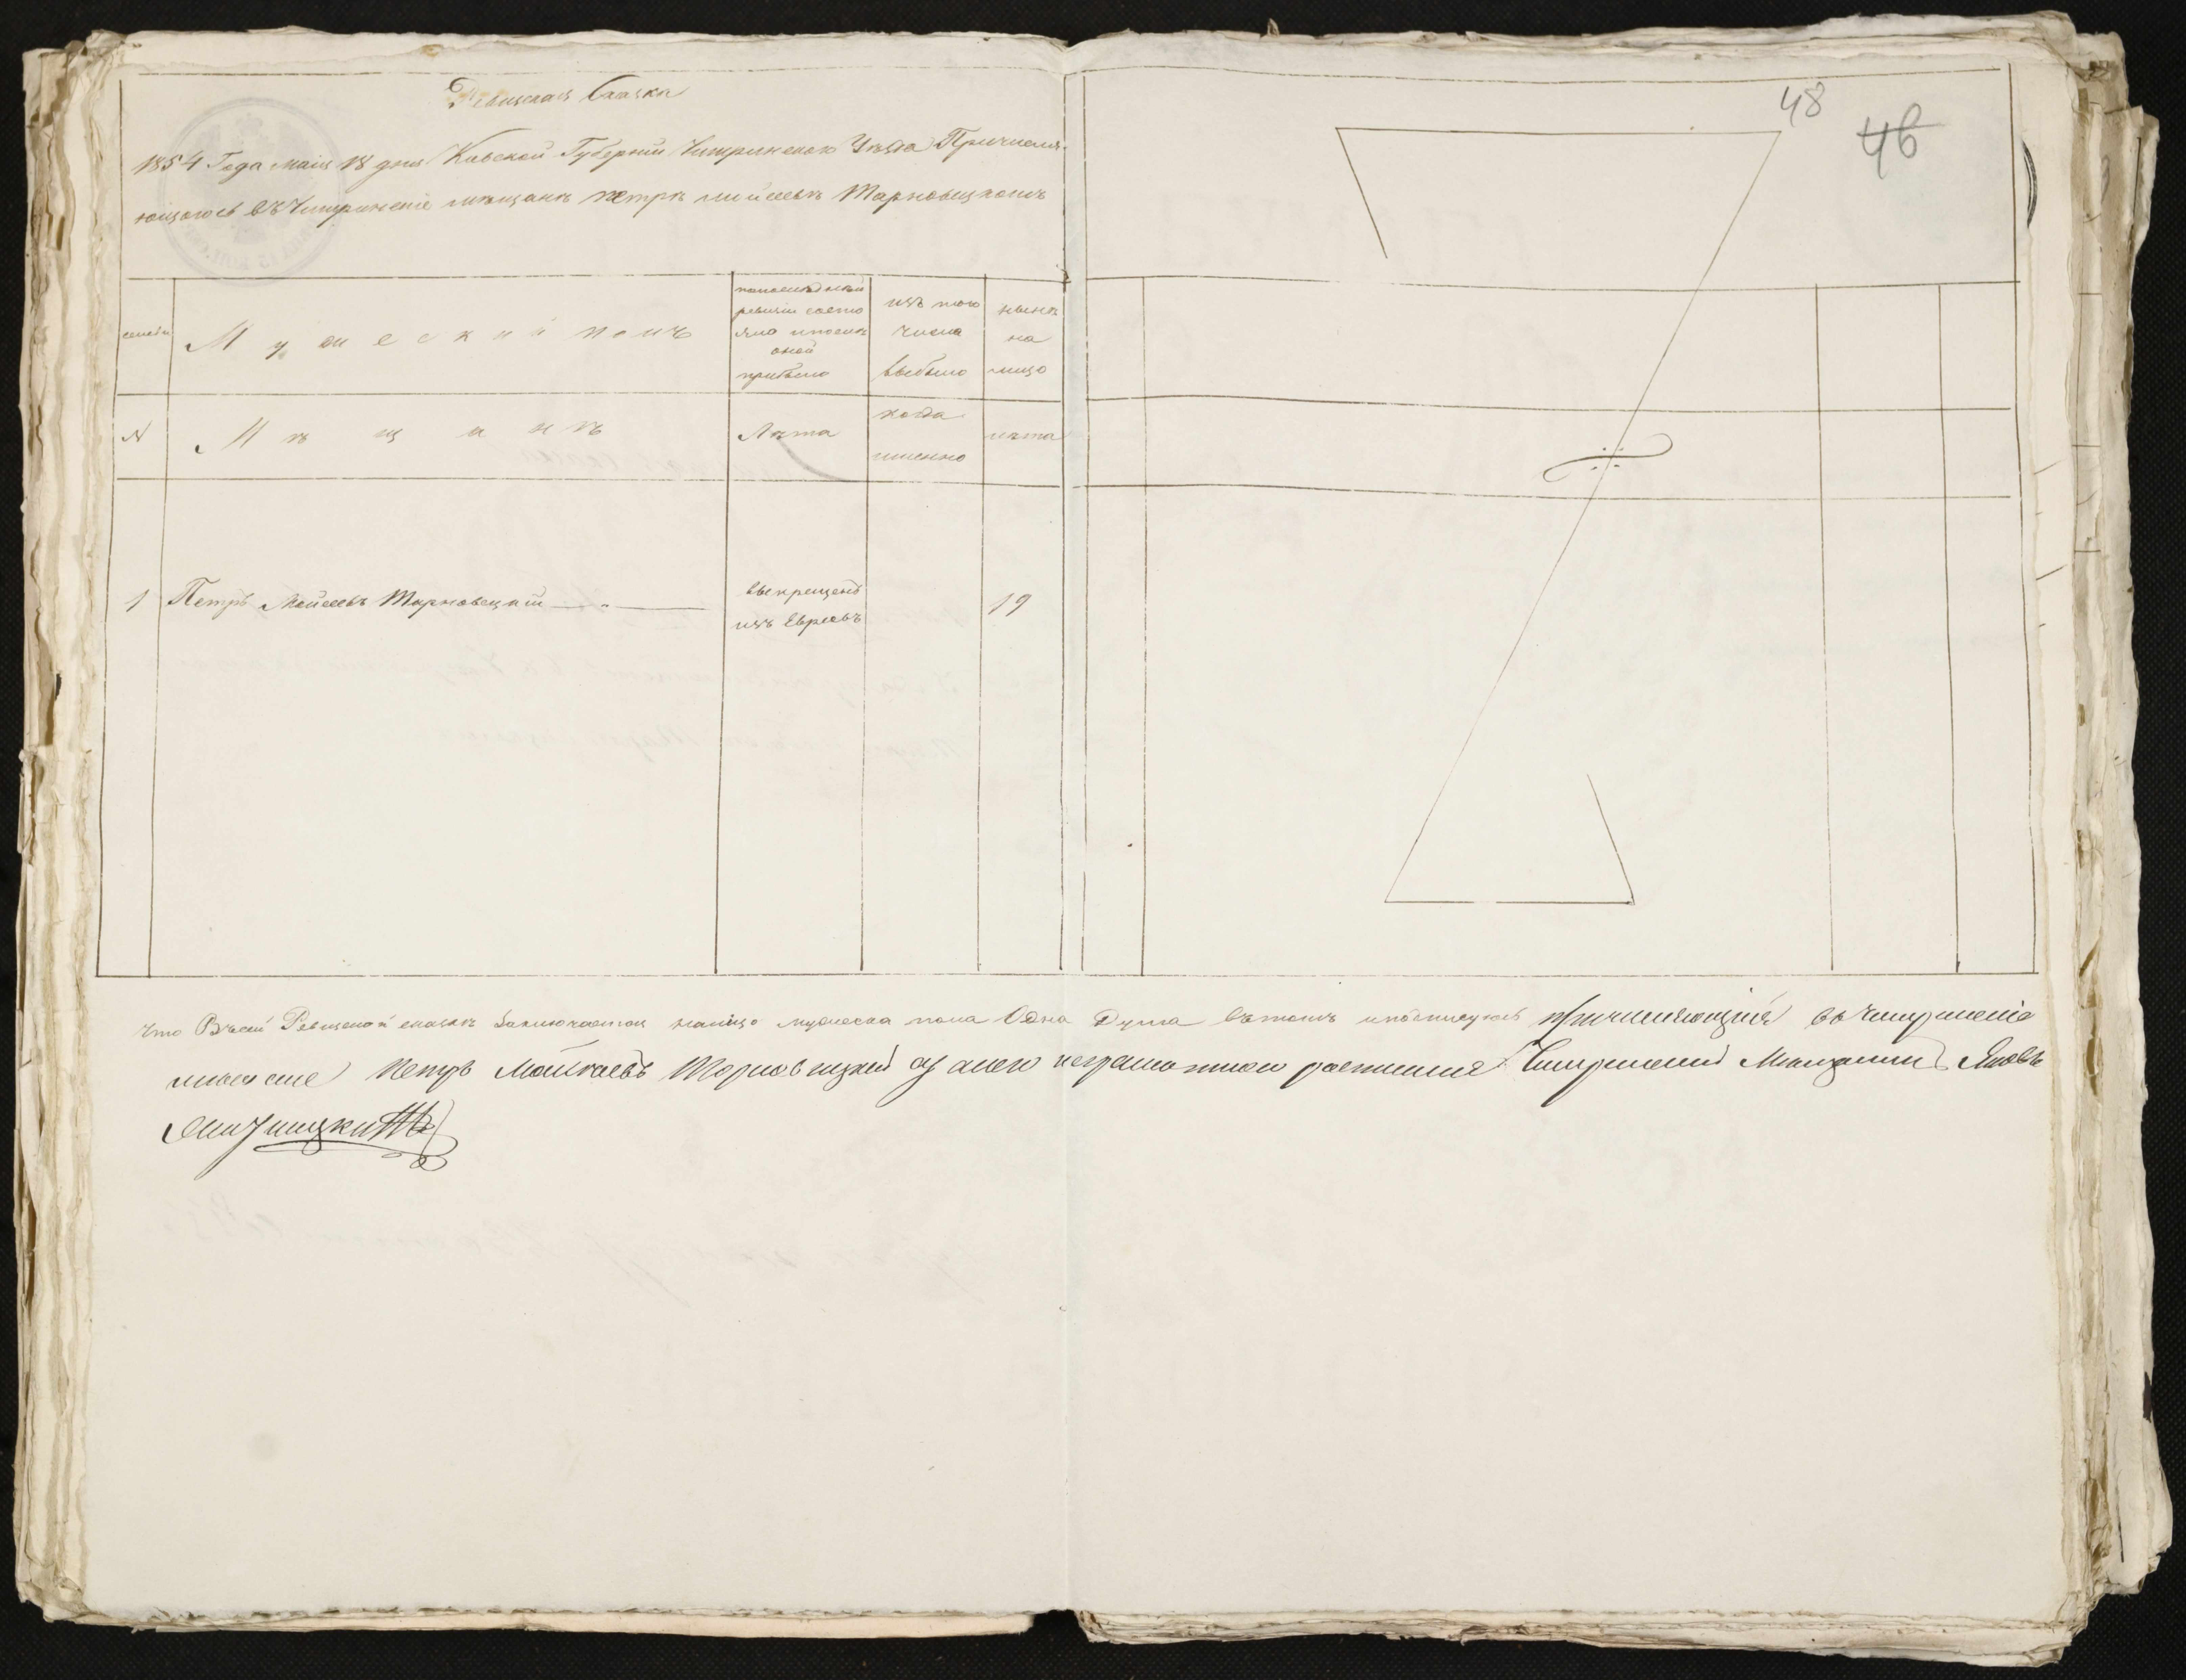 Ревизская Сказка
1854 Года маія 18 дня Кіевской Губерніи Чигринского Уезда Причисля-
ющагося въ Чигринскіе мѣщане петра мойсеева Тарновецкого
48
46
семьи
Мужескій полъ
попоследней ревизіи состояло ипосле оной прибыло
изъ того числа выбыло
ныне на лицо
N
Мѣщане
Лѣта
когда именно
лѣта
1
Петръ Мойсеевъ Тарновецкій
выкрещенъ изъ Евреевъ
19
Что Въсей Ревизской сказке Заключается налицо мужеска пола Одна Душа вътомъ иподписуюсь причисляющійся въ Чигринскіе
мещане Петръ Мойсеевъ Тарновецкий а занего неграмотного росписался Чигринский Мещанин Яковъ